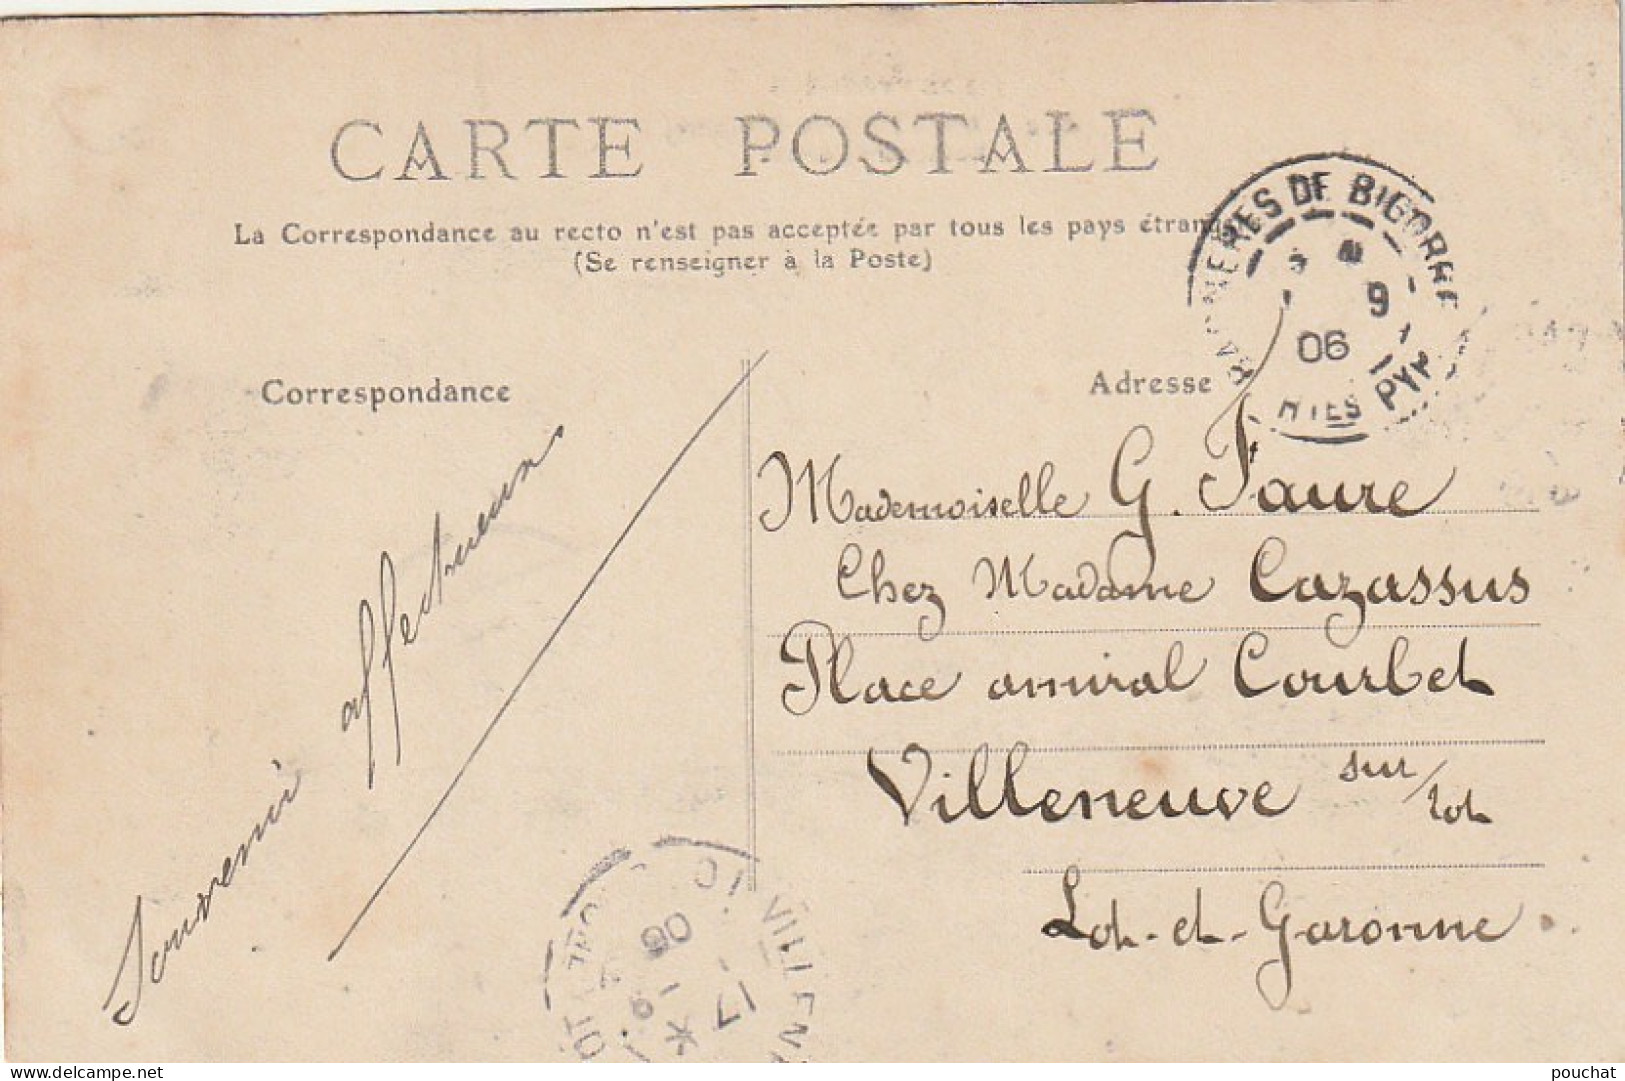 CARTE POSTALE
La Correspondance au recto n'est pas acceptée par tous les pays étran
(Se renseigner à la Poste)
BAGNERES DE BIGORRE
9
06
HTES PYR
Correspondance
Adresse
Souvenir affectueux
Mademoiselle G. Faure
Chez Madame Cazassus
Place amiral Courbet
Villeneuve sur/Lot
Lot-et-Garonne
VILLENE
17
9
06
delcampe.net
pouchat